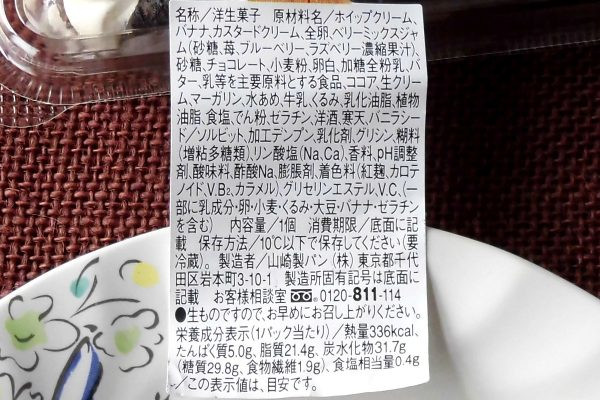 名称／洋生菓子　原材料名／ホイップクリーム、
バナナ、カスタードクリーム、全卵、ベリーミックスジャ
ム(砂糖、苺、ブルーベリー、ラズベリー濃縮果汁)、
砂糖、チョコレート、小麦粉、卵白、加糖全粉乳、バ
ター、乳等を主要原料とする食品、ココア、生クリー
ム、マーガリン、水あめ、牛乳、くるみ、乳化油脂、植物
油脂、食塩、でん粉、ゼラチン、洋酒、寒天、バニラシー
ド／ソルビット、加工デンプン、乳化剤、グリシン、糊料
(増粘多糖類)、リン酸塩(Na、Ca)、香料、pH調整
剤、酸味料、酢酸Na、膨脹剤、着色料(紅麹、カロテ
ノイド、V.B₂、カラメル)、グリセリンエステル、V.C、(一
部に乳成分・卵・小麦・くるみ・大豆・バナナ・ゼラチン
を含む)　内容量／1個　消費期限／底面に記
載　保存方法／10℃以下で保存してください(要
冷蔵)。製造者／山崎製パン(株)東京都千代
田区岩本町3-10-1　製造所固有記号は底面に
記載　お客様相談室 0120-811-114
●生ものですので、お早めにお召し上がりください。
栄養成分表示(1パック当たり)／熱量336kcal、
たんぱく質5.0g、脂質21.4g、炭水化物31.7g
(糖質29.8g、食物繊維1.9g)、食塩相当量0.4g
／この表示値は、目安です。